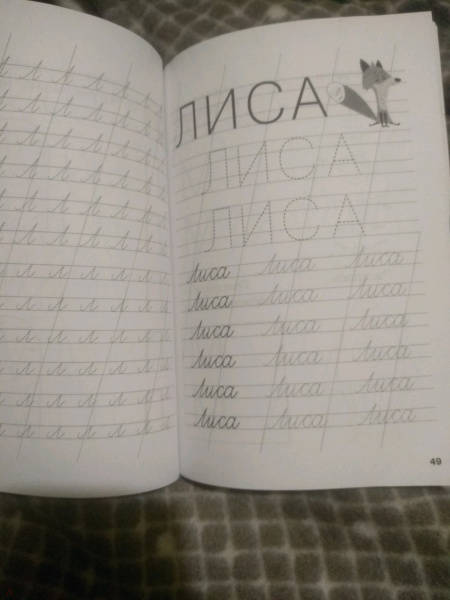 Л Л Л Л Л Л
Л Л Л Л Л Л
Л Л Л Л Л Л
Л Л Л Л Л Л
Л Л Л Л Л Л
Л Л Л Л Л Л
л л л л л л
л л л л л л
л л л л л л
л л л л л л
л л л л л л
л л л л л л
ЛИСА
ЛИСА
ЛИСА
Лиса Лиса Лиса
Лиса Лиса Лиса
Лиса Лиса Лиса
Лиса Лиса Лиса
Лиса Лиса Лиса
Лиса Лиса Лиса
49